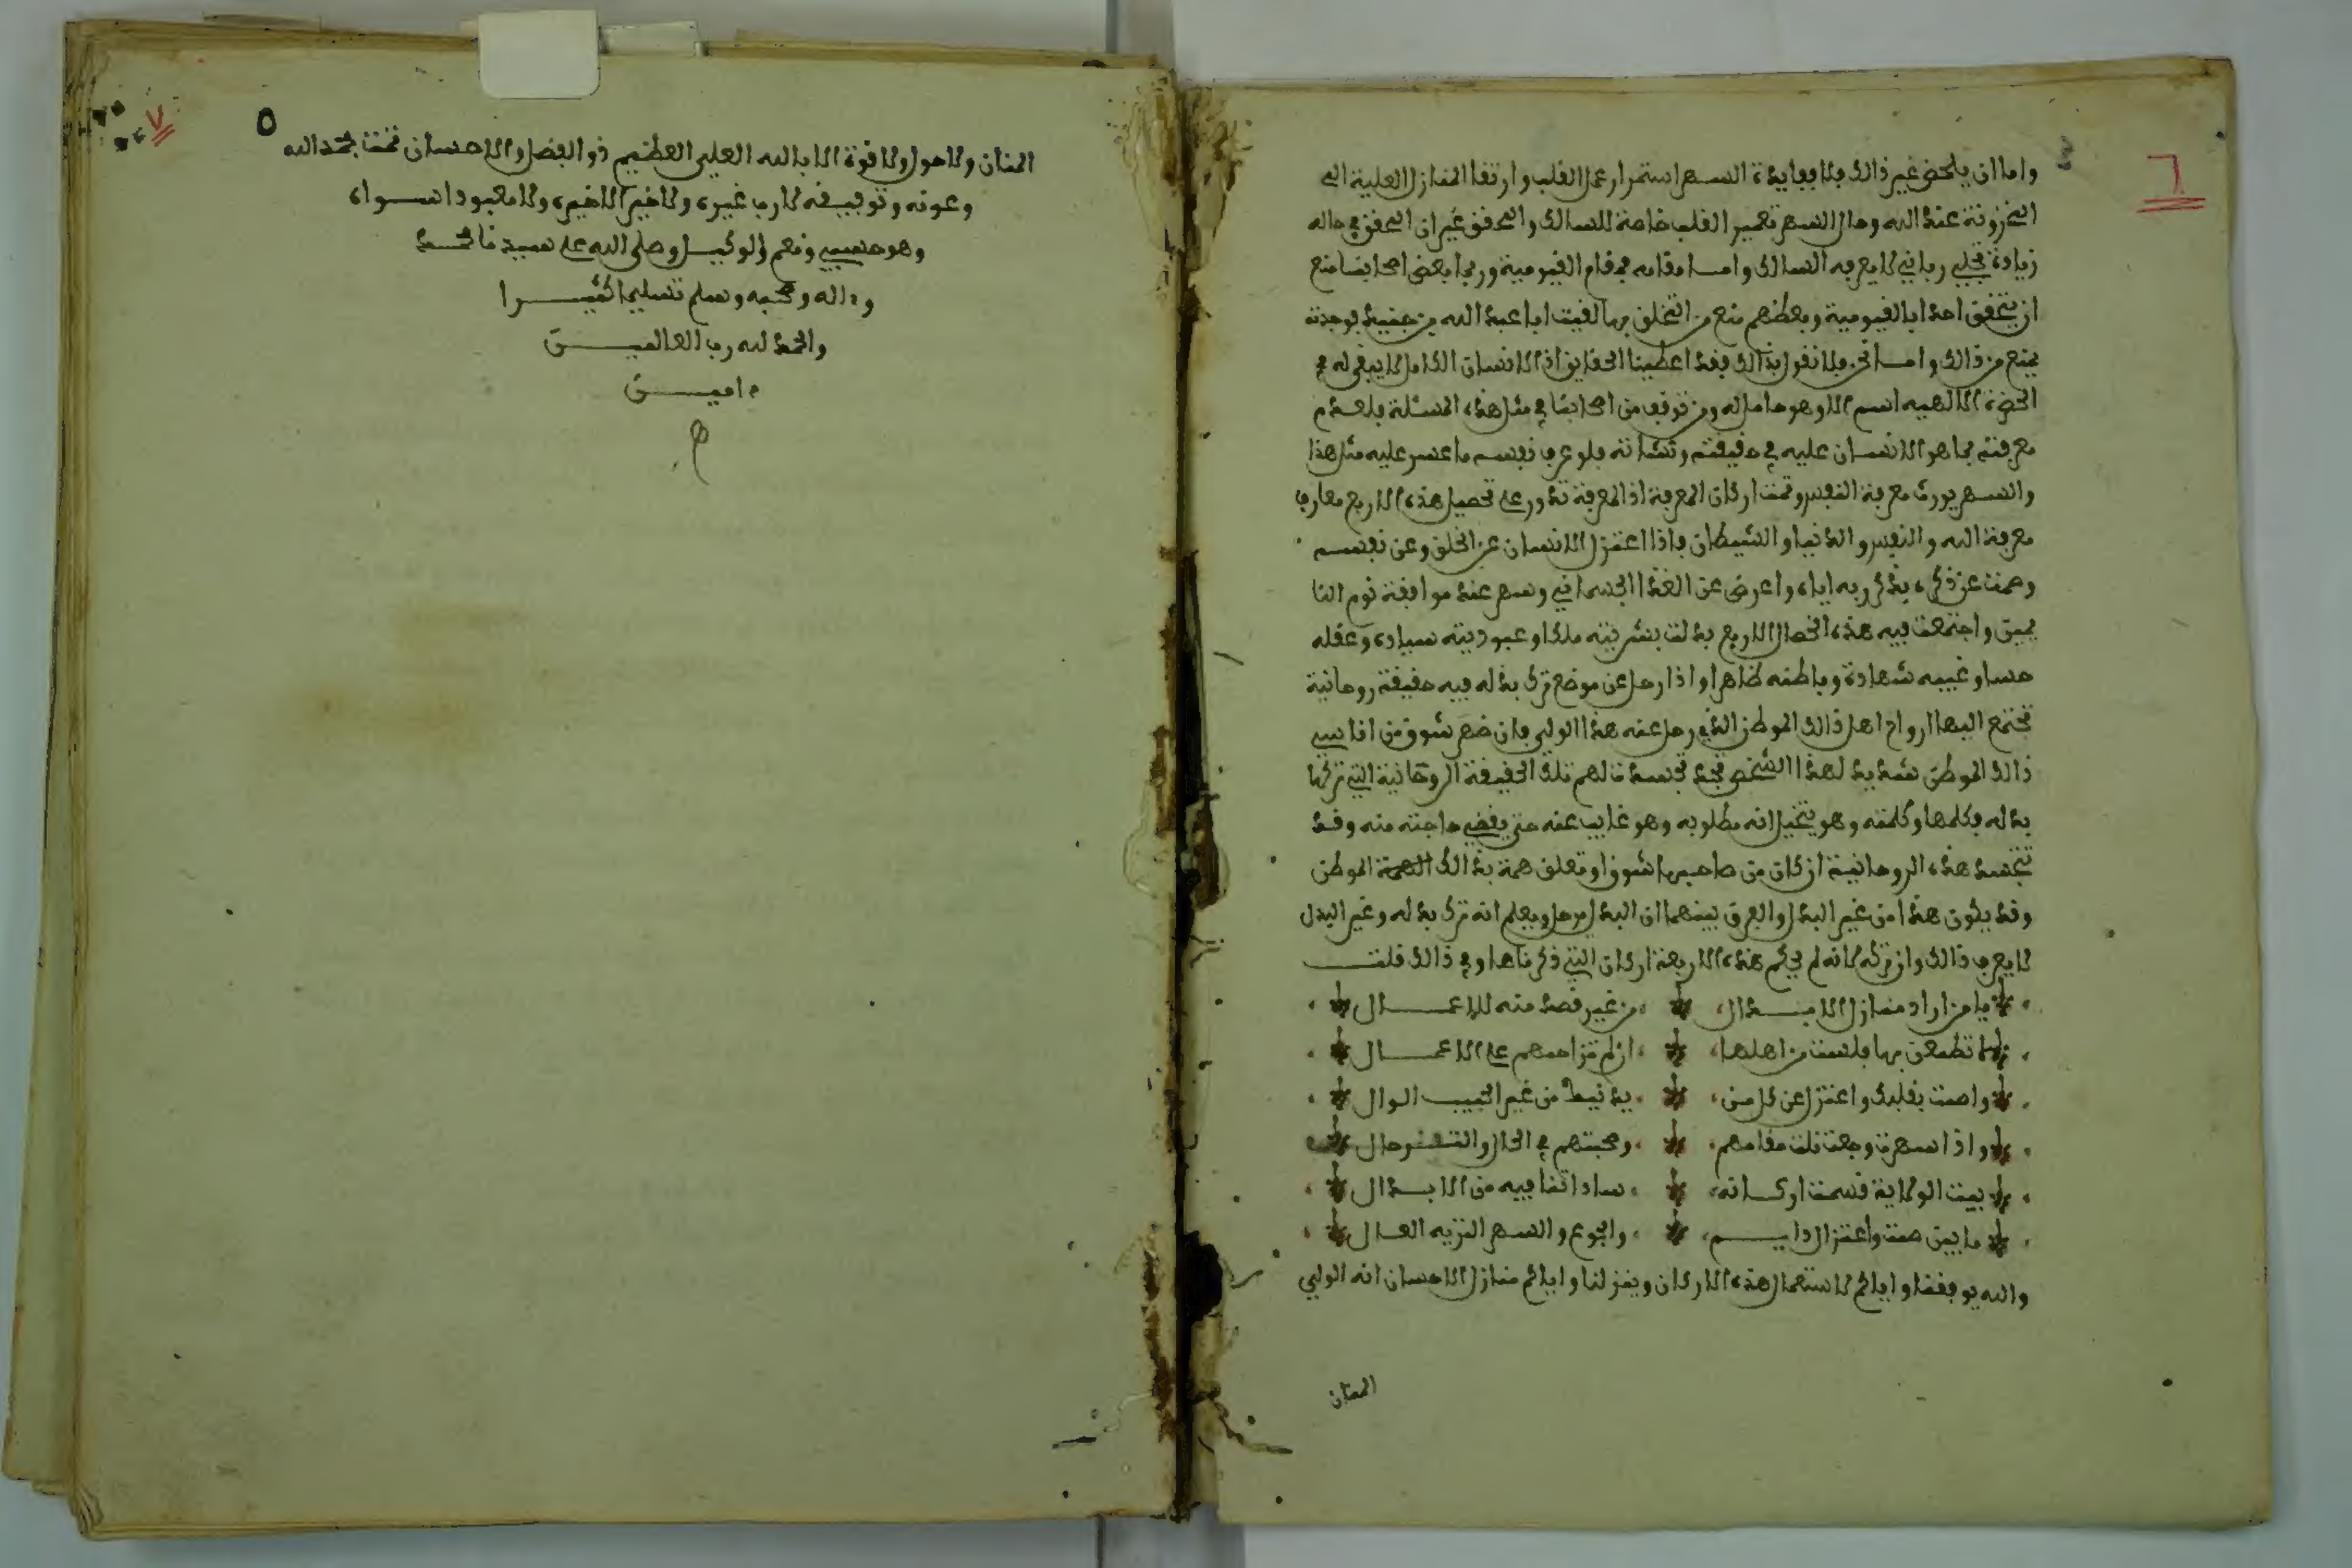 ٦
واما ان يلحض غير ذالك فلا ففايدة السهر استمرار عمل القلب وارتقا المنازل العلية الى
المخزونة عند الله وحال السهر تعمير القلب خاصة للسالك والمحقق غير ان المحقق في حاله
زيادة تجلي رباني لا يعرفه السالك وامــا مقامه فمقام القيومية وربما بعض اصحابنا منع
ان يتحقق احد ابالقيومية وبعضهم منع من التخلق بها لقيت ابا عبد الله بن جنيد فوجدته
يمنع من ذالك وامــا نحن فلا نقول بذالك فقد اعطينا الحقايق اذ الانسان الكامل لا يبقى له في
الحضرة الالهيه اسم الا وهو حامل له ومن توقف من اصحابنا في مثل هذه المسئلة فلعدم
معرفته بما هو الانسان عليه في حقيقته ونشاته فلو عرف نفسه ما عسر عليه مثل هذا
والسهر يورث معرفة النفس وتمت اركان المعرفة اذ المعرفة تدور على تحصيل هذه الاربع معارف
معرفة الله والنفس والدنيا والشيطان فاذا اعتزل الانسان عن الخلق وعن نفسه
وصمت عن ذكره بذكر ربه اياه واعرض عن الغذا الجسماني وسهر عند موافقة نوم النا
يمين واجتمعت فيه هذه الخصال الاربع بدلت بشريته ملكا وعبوديته سيادة وعقله
حسا وغيبه شهادة وباطنه ظاهرا واذا رحل عن موضع ترك بدله فيه حقيقة روحانية
تجتمع اليها ارواح اهل ذالك الموطن الذي رحل عنه هذا الولي فان ظهر شوق من اناسي
ذالك الموطن شديد لهذا الشخص تجد تجسدت لهم تلك الحقيقة الروحانية التي تركها
بدله فكلمها وكلمته وهو يتخيل انه مطلوبه وهو غايب عنه حتى يقضي حاجته منه وقد
تتجسد هذه الروحانية ان كان من صاحبها شوق او تعلق همة بذالك الموطن
وقد يكون هذا من غير البدل والفرق بينهما ان البدل يرحل ويعلم انه ترك بدله وغير البدل
لا يعرف ذالك وان تركه لانه لم يحكم هذه الاربعة اركان التي ذكرناها وفي ذالك قلت
يا من اراد منازل الابــدال من غير قصد منه للاعمــال
لا تطمعن بها فلست من اهلها ان لم تزاحمهم على الاعمــال
واصمت بقلبك واعتزل عن كل من يدنيك من غير الحبيب الوال
واذا سهرت وجعت نلت مقامهم وصحبتهم في الحال والترحال
بيت الولاية قسمت اركــانه ساداتنا فيه من الابــدال
ما بين صمت واعتزال دايــم والجوع والسهر النزيه العــال
والله يوفقنا واياكم لاستعمال هذه الاركان وينزلنا واياكم منازل الاحسان انه الولي
المنان
٧
٥
المنان ولا حول ولا قوة الا بالله العلي العظيم ذو الفضل والاحسان تمت بحمد الله
وعونه وتوفيقه لا رب غيره ولا خير الا خيره ولا معبود ا سواه
وهو حسبي ونعم الوكيــل وصلى الله على سيدنا محمــد
وءاله وصحبه وسلم تسليما كثيــرا
والحمد لله رب العالميــن
ءاميــن